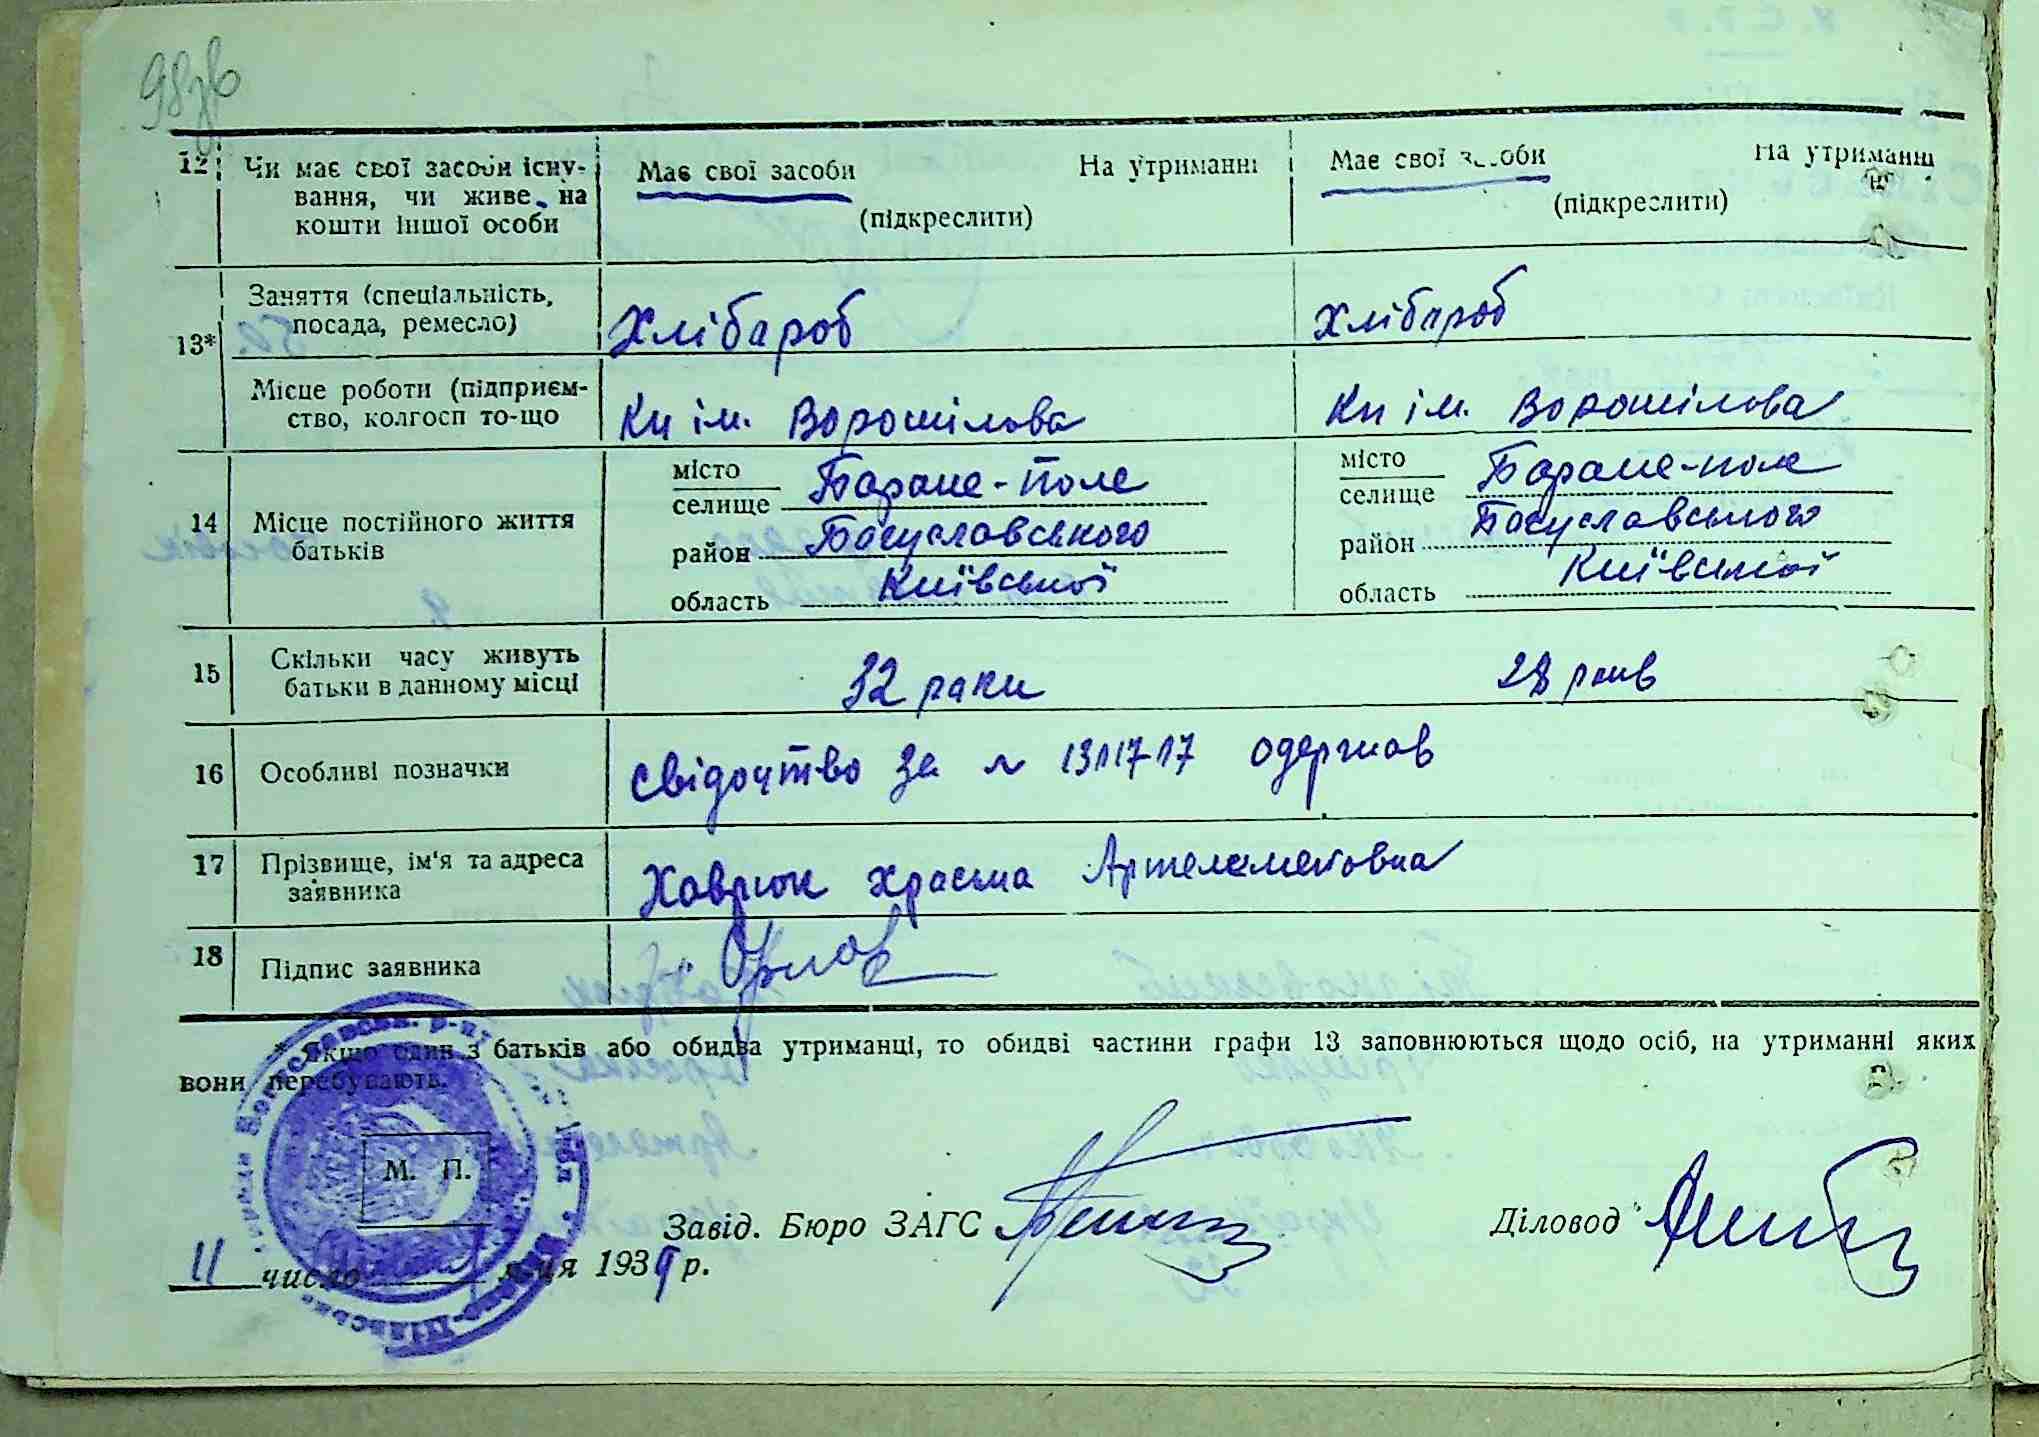 98зв
12 Чи має свої засоби існу-
вання, чи живе на
кошти іншої особи
Має свої засоби На утриманні
(підкреслити)
Має свої засоби На утриманні
(підкреслити)
13*
Заняття (спеціальність,
посада, ремесло)
Хлібароб
Хлібароб
Місце роботи (підприєм-
ство, колгосп то-що
Кп ім. Ворошілова
Кп ім. Ворошілова
14 Місце постійного життя
батьків
місто
селище Баране-Поле
район Богуславського
область Київської
місто
селище Баране-поле
район Богуславського
область Київської
15 Скільки часу живуть
батьки в данному місці
32 роки
28 роив
16 Особливі позначки
свідочтво за № 1311717 одержав
17 Прізвище, ім'я та адреса
заявника
Ховрюк
18 Підпис заявника
* Якщо один з батьків або обидва утриманці, то обидві частини графи 13 заповнюються щодо осіб, на утриманні яких
вони перебувають.
М. П.
Завід. Бюро ЗАГС
Діловод
11 число м-ця 1939 р.